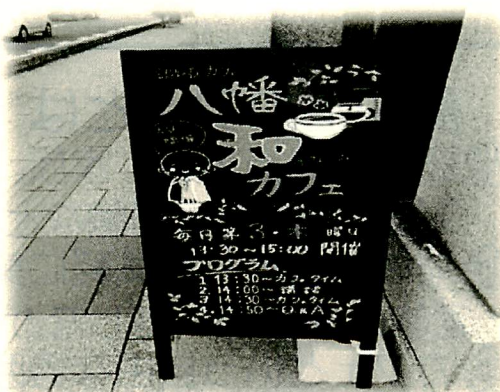 八幡
和
カフェ
毎月第3・木曜日
13:30～15:00 開催
プログラム
1 13:30～カフェタイム
2. 14:00～講話
3 14:30～カフェタイム
4. 14:50～Q&A